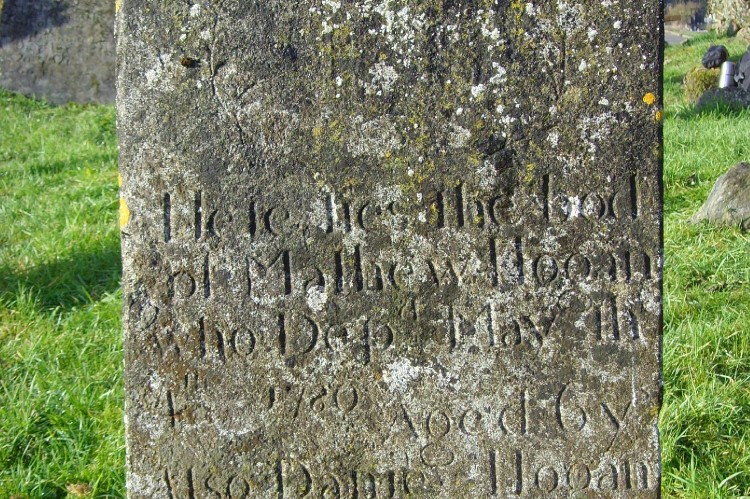 Here lies the bod
of Mathew Hogan
who Dep.d May th
4th 1780 Aged 6 y
Also Daniel Hogan